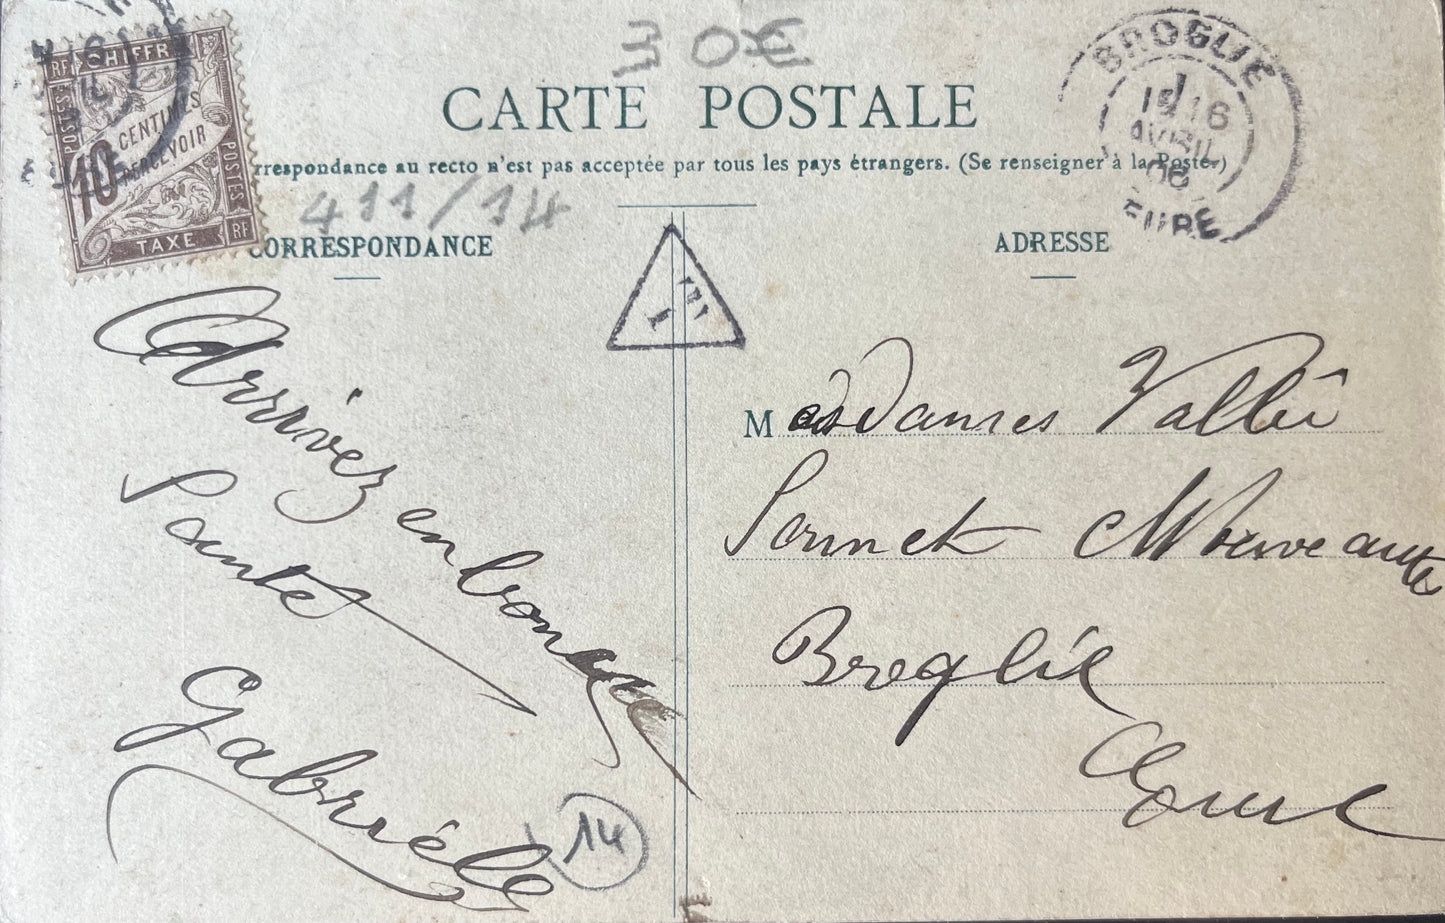 30€
CARTE POSTALE
rrespondance au recto n'est pas acceptée par tous les pays étrangers. (Se renseigner à la Poste.)
RF CHIFFR
POSTES
10 CENTIMES
PERCEVOIR
POSTES
TAXE RF
411/14
CORRESPONDANCE
Arrivéz en bonne
Santé
Gabrièlle
14
T
BROGLIE
16
AVRIL
06
EURE
ADRESSE
Mesdames Vallée
Nouveautés
Broglie
Eure